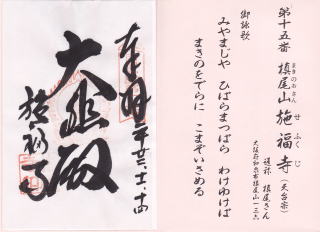 第十五番 槙尾山 施福寺 (天台宗)
まきのおさん せふくじ
通称 槙尾さん
大阪府和泉市槙尾山一三六
御詠歌
みやまじや ひばらまつばら わけゆけば
まきのをでらに こまぞいさめる
奉拝
大悲殿
施福寺